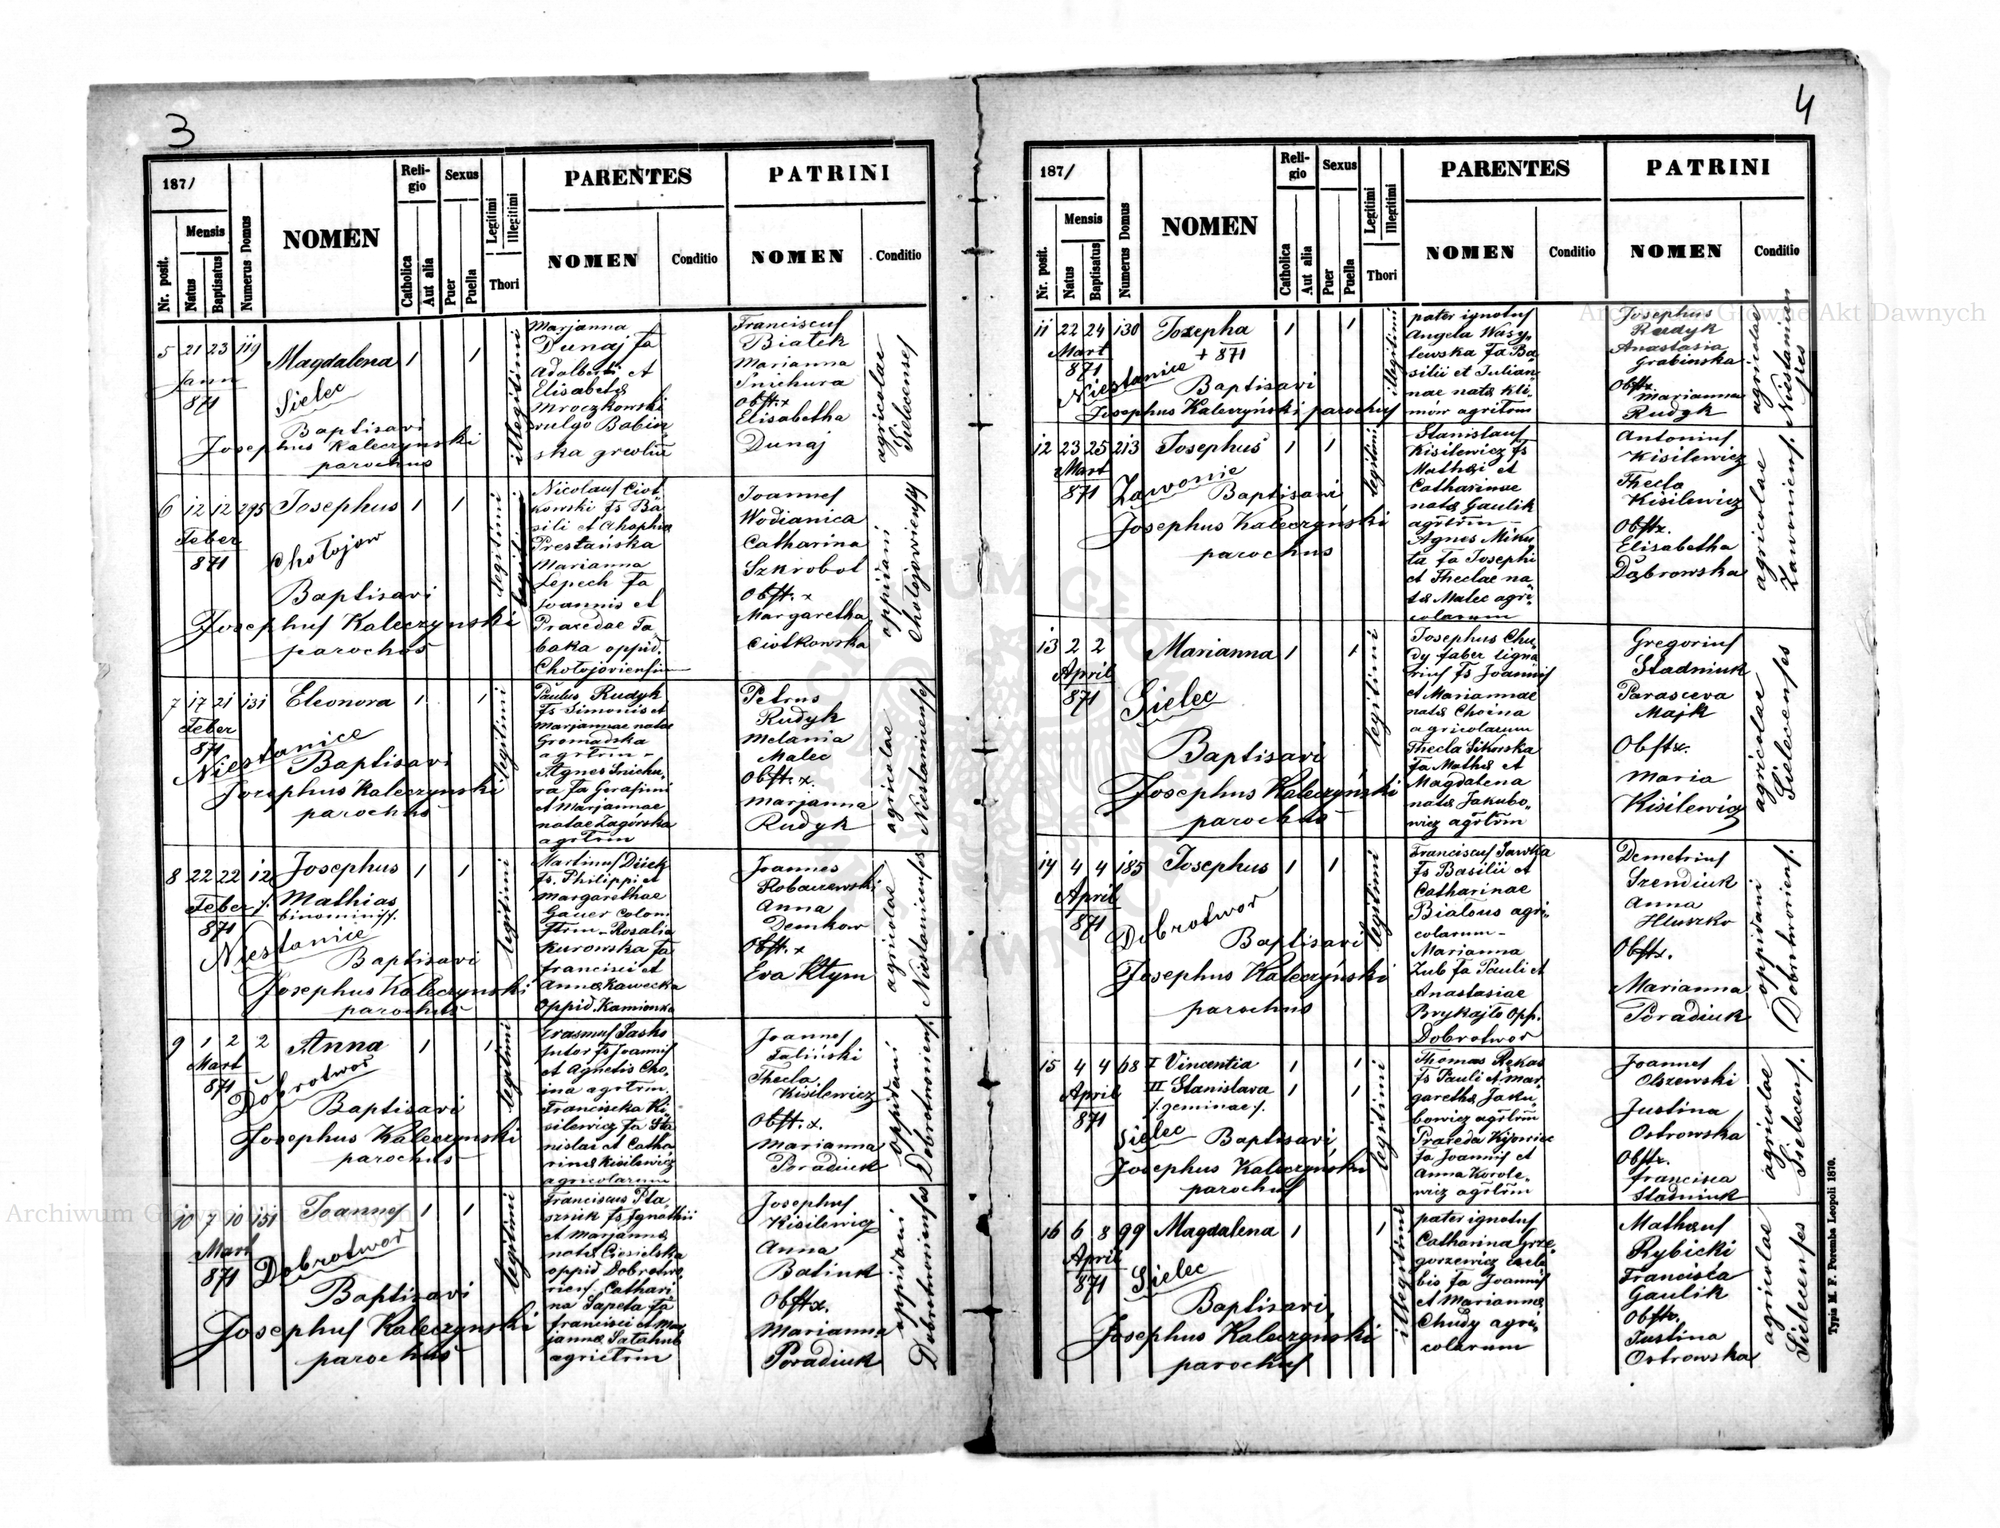 3
187/
Nr. posit.
Mensis
Natus
Baptisatus
Numerus Domus
NOMEN
Religio
Catholica
Aut alia
Sexus
Puer
Puella
Legitimi
Illegitimi
Thori
PARENTES
NOMEN
Conditio
PATRINI
NOMEN
Conditio
5 21 23 119
Jann
871
Magdalena 1 1
Sielec
Baptisavi
Josephus Kaleczynski
parochus
illegitimi
Marjanna
Dunaj fa
Adalberti et
Elisabeth
Mroczkowski
vulgo Babin
ska
Franciscus
Białek
Marianna
Snichura
Obst. x
Elisabetha
Dunaj
agricolae
Sielecenses
6 12 12 295 Josephus 1 1
Feber
871
Chołojow
Baptisavi
Josephus Kaleczynski
parochus
legitimi
Nicolaus Ciol
kowski fs Ba
sili et
Prestańska
Marianna
Lepech fa
Joannis et
Praxedae Ta
baka oppid.
Chołojoviensium
Joannes
Wodianica
Catharina
Szkrobot
Obst. x
Margaretha
Ciolkowska
oppidani
Chołojovienses
7 17 21 131 Eleonora 1 1
Feber
871
Niestanice
Baptisavi
Josephus Kaleczynski
parochus
legitimi
Paulus Rudyk
fs Simonis et
Marjannae natae
Gromadska
agrtrm -
Agnes Snichu
ra fa Gerasimi
et Marjannae
natae Zagórska
agrtrm
Petrus
Rudyk
Melania
Malec
Obst. x.
Marjanna
Rudyk
agricolae
Niestanienses
8 22 22 12 Josephus 1 1
Feber
871
Mathias
binominis
Niestanice
Baptisavi
Josephus Kaleczynski
parochus
legitimi
Martinus Dück
fs. Philippi et
Margarethae
Gauer colon
Rosalia
Kurowska fa
Francisci et
Annae Kawecka
oppid. Kamionka
Joannes
Anna
Demkow
Obst. x
Eva Kłym
agricolae
Niestanienses
9 1 2 2 Anna 1 1
Mart
871
Dobrotwor
Baptisavi
Josephus Kaleczynski
parochus
legitimi
Erasmus Sasko
sutor fs Joannis
et Agnetis Cho
ina agrtrm.
Francisca Ki
silewicz fa Sta
nislai et Catha
rinae Kisilewicz
agricolarum
Joannes
Taliński
Thecla
Kisilewicz
Obst. x.
Marianna
Poradiuk
oppidani
Dobrotworiens.
10 7 10 151 Joannes 1 1
Mart
871
Dobrotwor
Baptisavi
Josephus Kaleczynski
parochus
legitimi
Franciscus Pta
sznik fs Ignatii
et Marjannae
natae Ciesielska
oppid Dobrotwo
riens. Cathari
na Sapeta fa
Francisci et Mar
jannae Satahub
agrictrm
Josephus
Kisilewicz
Anna
Batiuk
Obstx.
Marianna
Poradiuk
oppidani
Dobrotworienses
4
187/
Nr. posit.
Mensis
Natus
Baptisatus
Numerus Domus
NOMEN
Religio
Catholica
Aut alia
Sexus
Puer
Puella
Legitimi
Illegitimi
Thori
PARENTES
NOMEN
Conditio
PATRINI
NOMEN
Conditio
11 22 24 130 Josepha 1 1
Mart
871
+ 871
Niestanice
Baptisavi
Josephus Kaleczyński parochus
illegitimi
pater ignotus
Angela Wasy
lewska fa Ba
silii et Julian
nae natae Kli
mów agritrm
Josephus
Rudyk
Anastasia
Grabinska
Obstx
Marianna
Rudyk
agricolae
Niestanien
ses
12 23 25 213 Josephus 1 1
Mart
871
Zawonie
Baptisavi
Josephus Kaleczyński
parochus
legitimi
Stanislaus
Kisilewicz fs
Mathei et
Catharinae
natae Gaulik
agrtrm -
Agnes Miku
ta fa Josephi
et Theclae na
tae Malec agri
colarum
Antonius
Kisilewicz
Thecla
Kisilewicz
Obstx.
Elisabetha
Dąbrowska
agricolae
Zawoniens.
13 2 2 Marianna 1 1
April
871
Sielec
Baptisavi
Josephus Kaleczyński
parochus
legitimi
Josephus Chu
dy faber ligna
rius fs Joannis
et Mariannae
natae Choina
agricolarum
Thecla Sikorska
fa Mathei et
Magdalena
natae Jakubo
wicz agrtrm
Gregorius
Stadniuk
Parasceva
Majk
Obstx.
Maria
Kisilewicz
agricolae
Sielecenses
14 4 4 185 Josephus 1 1
April
871
Dobrotwor
Baptisavi
Josephus Kaleczyński
parochus
legitimi
Franciscus Sawka
fs Basilii et
Catharinae
Białous agri
colarum -
Marianna
Zub fa Pauli et
Anastasiae
Brykajto opp.
Dobrotwor
Demetrius
Szendiuk
Anna
Hluszko
Obstx.
Marianna
Poradiuk
oppidani
Dobrotworiens.
15 4 4 68 I Vincentia 1 1
April
871
II Stanislava 1 1
/.geminae/.
Sielec
Baptisavi
Josephus Kaleczyński
parochus
legitimi
Thomas Rękas
fs Pauli et Mar
garethae Jaku
bowicz agrtrm
Praxeda Kijowiec
fa Joannis et
Anna Korole
wicz agrtrm
Joannes
Olszewski
Justina
Ostrowska
Obstx.
Francisca
Stadniuk
agricolae
Sielecens.
16 6 8 99 Magdalena 1 1
April
871
Sielec
Baptisavi
Josephus Kaleczyński
parochus
illegitimi
pater ignotus
Catharina Grze
gorzewicz caele
bis fa Joannis
et Mariannae
Chudy agri
colarum
Mathaeus
Rybicki
Francisca
Gaulik
Obstx.
Justina
Ostrowska
agricolae
Sielecenses
Typis M. F. Poremba Leopoli 1870.
Archiwum Główne Akt Dawnych
Archiwum Główne Akt Dawnych